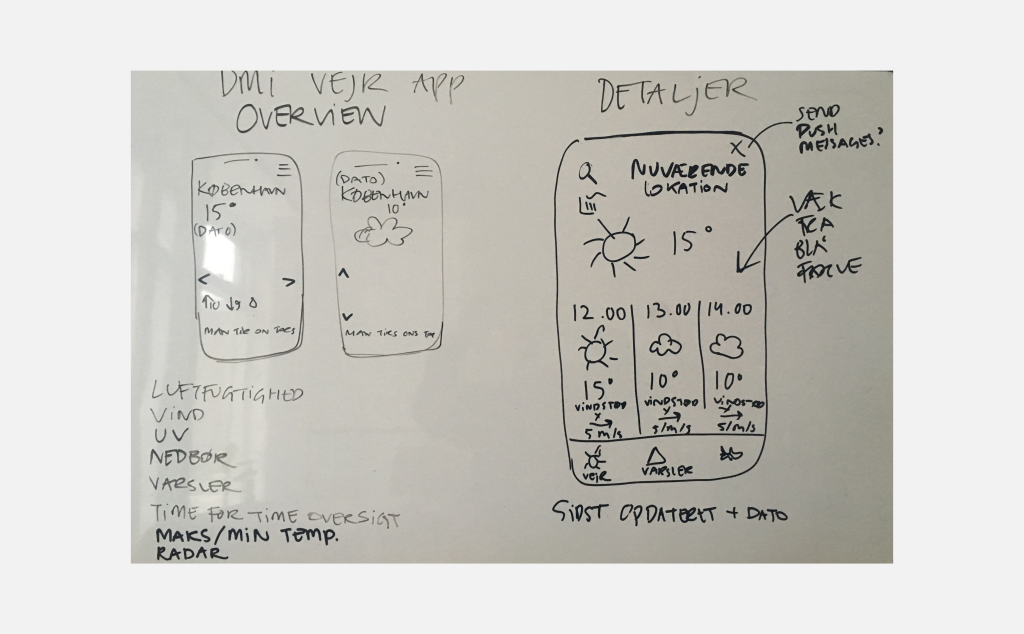 DMI VEJR APP
OVERVIEW
KØBENHAVN
15°
(DATO)
< >
MAN TIR ON TORS
(DATO)
KØBENHAVN
10°
MAN TIRS ONS TOR
LUFTFUGTIGHED
VIND
UV
NEDBØR
VARSLER
TIME FOR TIME OVERSIGT
MAKS/MIN TEMP.
RADAR
DETALJER
X
SEND
PUSH
MESSAGES?
NUVÆRENDE
LOKATION
15°
VÆK
FRA
BLÅ
FARVE
12.00 13.00 14.00
15° 10° 10°
VINDSTØD VINDSTØD VINDSTØD
5 m/s 5/m/s 5/m/s
VEJR VARSLER
SIDST OPDATERET + DATO